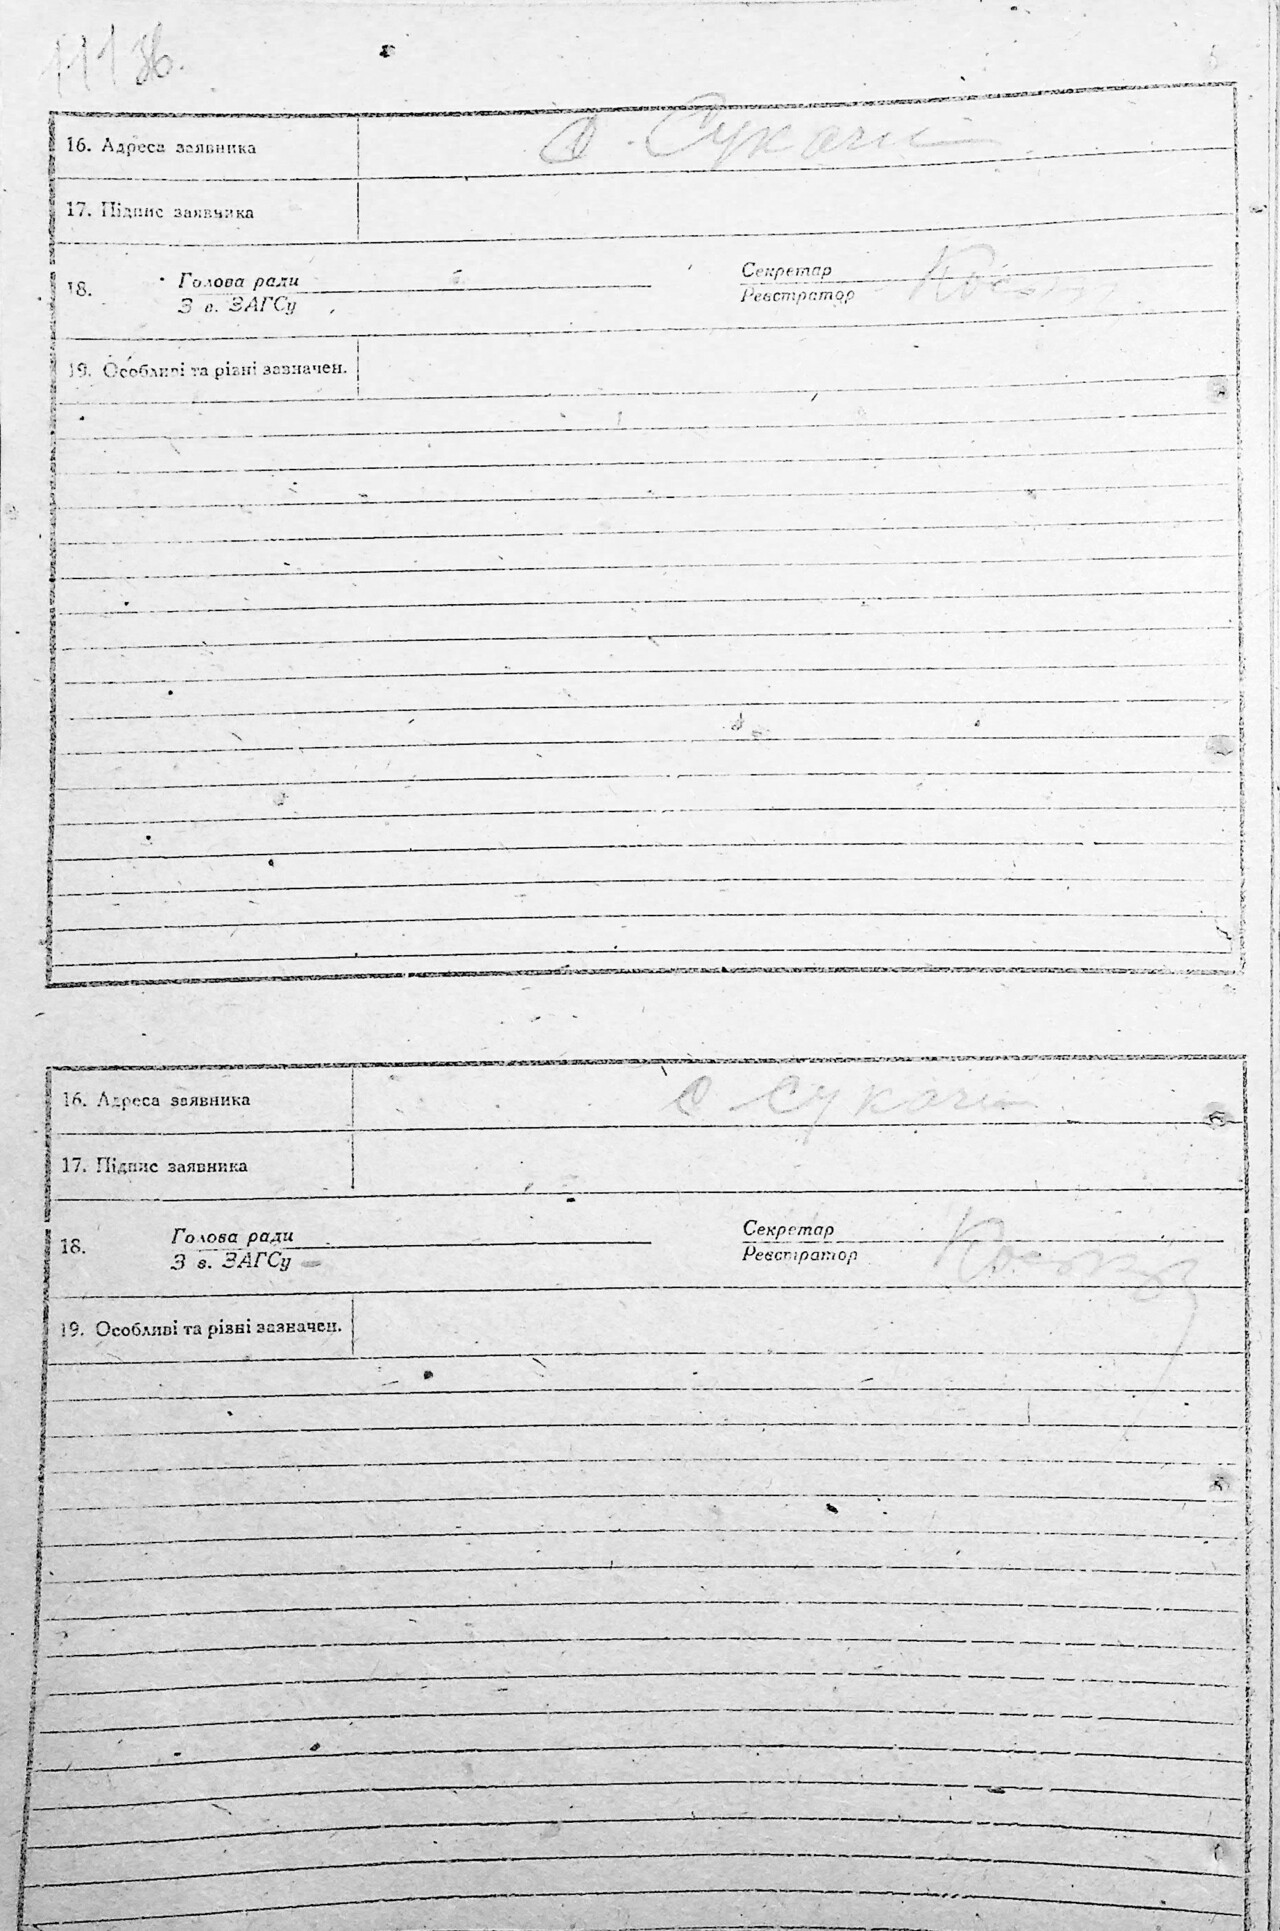 111 зв.
16. Адреса заявника с. Сукачі
17. Підпис заявника
Голова ради Секретар
18.
Зав. ЗАГСу Реєстратор
19. Особливі та різні зазначен.
16. Адреса заявника с Сукачі
17. Підпис заявника
Голова ради Секретар
18.
Зав. ЗАГСу Реєстратор
19. Особливі та різні зазначен.